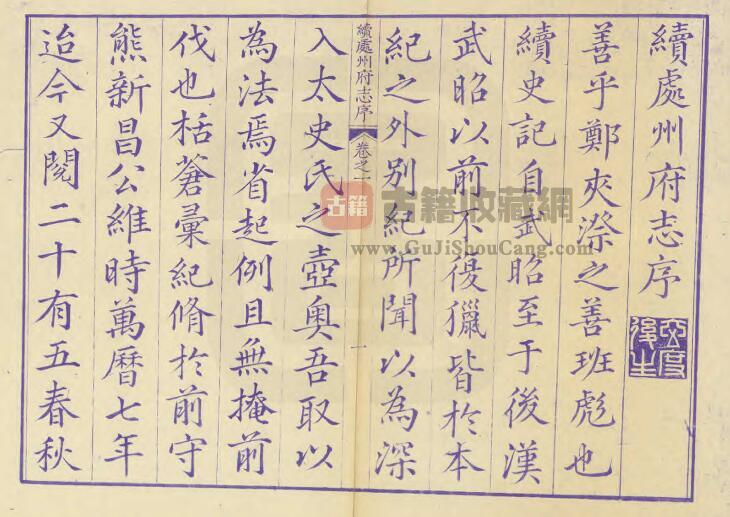 續處州府志序
善乎鄭夾漈之善班彪也
續史記自武昭至于後漢
武昭以前不復獵皆於本
紀之外別紀所聞以為深
續處州府志序 卷之一 一
入太史氏之壺奧吾取以
為法焉省起例且無掩前
伐也栝蒼彙紀脩於前守
熊新昌公維時萬曆七年
迨今又閱二十有五春秋
古籍 古籍收藏網
www.GuJiShouCang.com